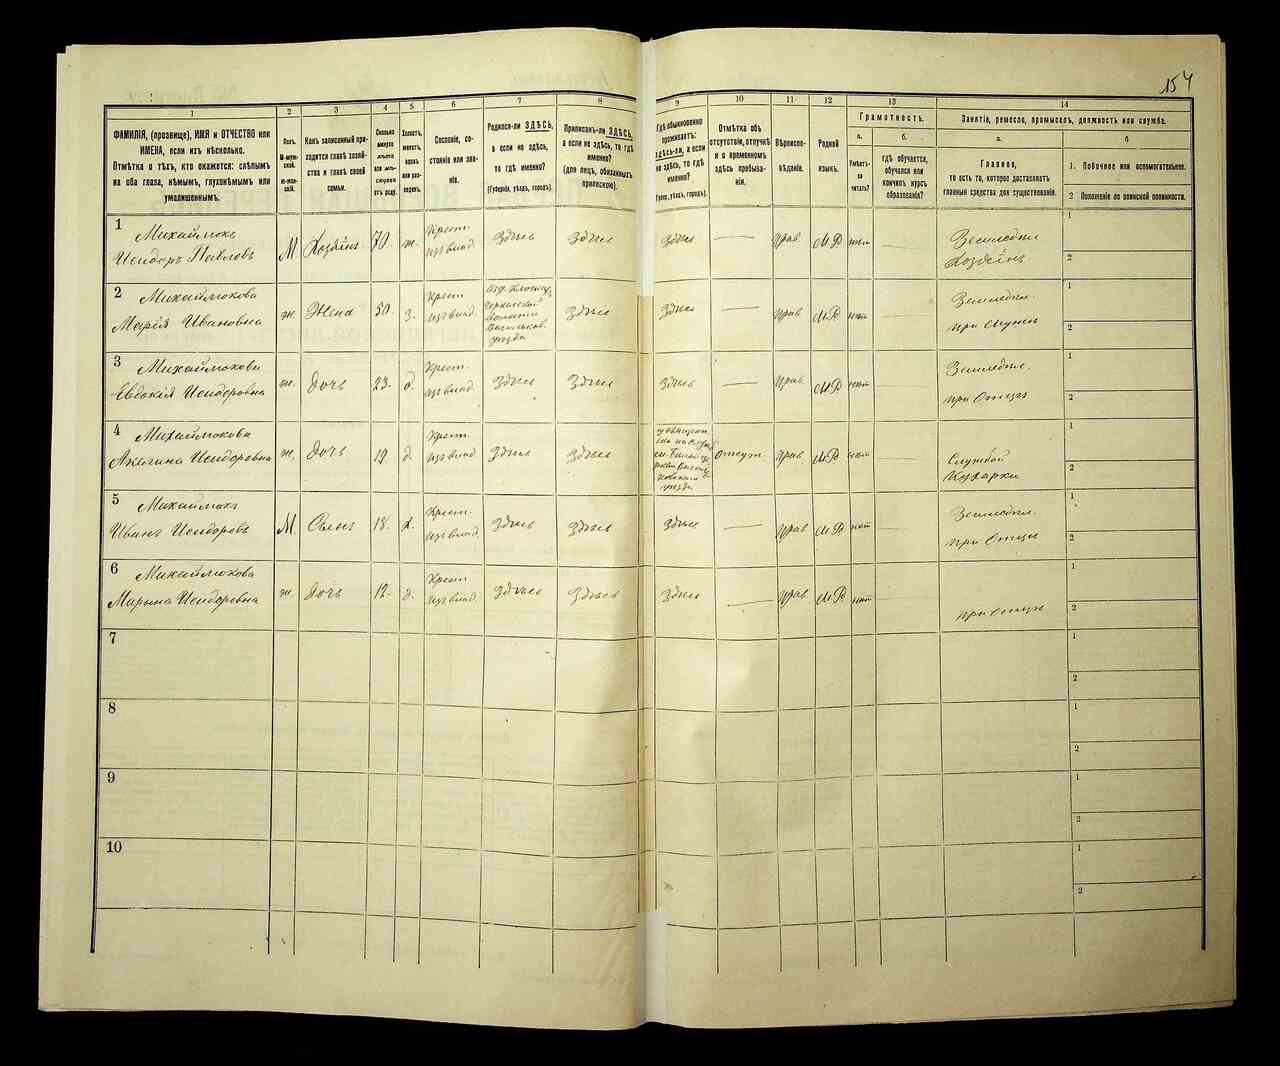 154
1
2
3
4
5
6
7
8
9
10
11
12
13
14
ФАМИЛІЯ, (прозвище), ИМЯ и ОТЧЕСТВО или
ИМЕНА, если ихъ нѣсколько.
Отмѣтка о тѣхъ, кто окажется: слѣпымъ
на оба глаза, нѣмымъ, глухонѣмымъ или
умалишеннымъ.
Полъ.
М-муж-
ской.
Ж-жен-
скій.
Какъ записанный при-
ходится главѣ хозяй-
ства и главѣ своей
семьи.
Сколько
минуло
лѣтъ
или мѣ-
сяцевъ
отъ роду.
Холостъ,
женатъ,
вдовъ
или раз-
веденъ.
Сословіе, со-
стояніе или зва-
ніе.
Родился-ли ЗДѢСЬ,
а если не здѣсь,
то гдѣ именно?
(Губернія, уѣздъ, городъ).
Приписанъ-ли ЗДѢСЬ,
а если не здѣсь, то гдѣ
именно?
(для лицъ, обязанныхъ
припискою).
Гдѣ обыкновенно
проживаетъ:
ЗДѢСЬ-ли, а если
не здѣсь, то гдѣ
именно?
(Губер., уѣздъ, городъ).
Отмѣтка объ
отсутствіи, отлучкѣ
и о временномъ
здѣсь пребыва-
ніи.
Вѣроиспо-
вѣданіе.
Родной
языкъ.
Грамотность.
а.
Умѣетъ-
ли
читать?
б.
гдѣ обучается,
обучался или
кончилъ курсъ
образованія?
Занятіе, ремесло, промыселъ, должность или служба.
а.
Главное,
то есть то, которое доставляетъ
главныя средства для существованія.
б
1. Побочное или вспомогательное.
2 Положеніе по воинской повинности.
1
Михаймюкъ
Исидоръ Павловъ
М.
Хозяинъ
70.
ж.
Крест.
изъ влад.
Здѣсь
Здѣсь
Здѣсь
—
Прав.
М.Р.
нѣт
—
Земледѣл.
Хозяинъ
1
2
2
Михаймюкова
Марія Ивановна
ж.
Жена
50.
з.
Крест
изъ влад.
волости
Васильков.
уѣзда
Здѣсь
Здѣсь
—
Прав
М.Р
нѣт
—
Земледѣл.
при Мужѣ
1
2
3
Михаймюкова
Евдокія Исидоровна
ж.
Дочь
23.
д.
Крест.
изъ влад.
Здѣсь
Здѣсь
Здѣсь
—
Прав.
М.Р
нѣт
—
Земледѣл.
при Отцѣ
1
2
4
Михаймюкова
Акелина Исидоровна
ж.
Дочь
19
д.
Крест.
изъ влад.
Здѣсь
Здѣсь
уѣзда
Отсут.
Прав.
М.Р
нѣт
—
Службой
Кухарки
1
2
5
Михаймюкъ
Иванъ Исидоровъ
М.
Сынъ
18.
х.
Крест.
изъ влад.
Здѣсь
Здѣсь
Здѣсь
—
Прав
М.Р.
нѣт
—
Земледѣл.
при Отцѣ
1
2
6
Михаймюкова
Марына Исидоровна
ж.
Дочь
12.
д.
Крест
изъ влад.
Здѣсь
Здѣсь
Здѣсь
—
Прав
М.Р
нѣт
—
при Отцѣ
1
2
7
1
2
8
1
2
9
1
2
10
1
2